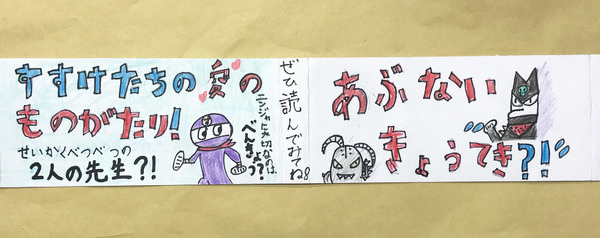 すすけたちの愛の
ものがたり!
せいかくべつべつの
2人の先生?!
ニンジャに大切なのは
べんきょう?
ぜひ読んでみてね!
あぶない
きょうてき?!